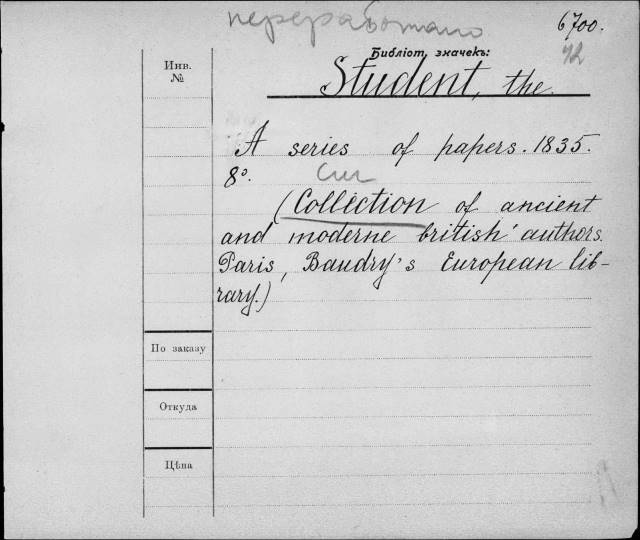 переработано
6700.
Библіот. значекъ:
42
Инв.
№
Student, the
A series of papers. 1835.
8º.
См
(Collection of ancient
and moderne british authors.
Paris, Baudry's European lib-
rary.)
По заказу
Откуда
Цѣна